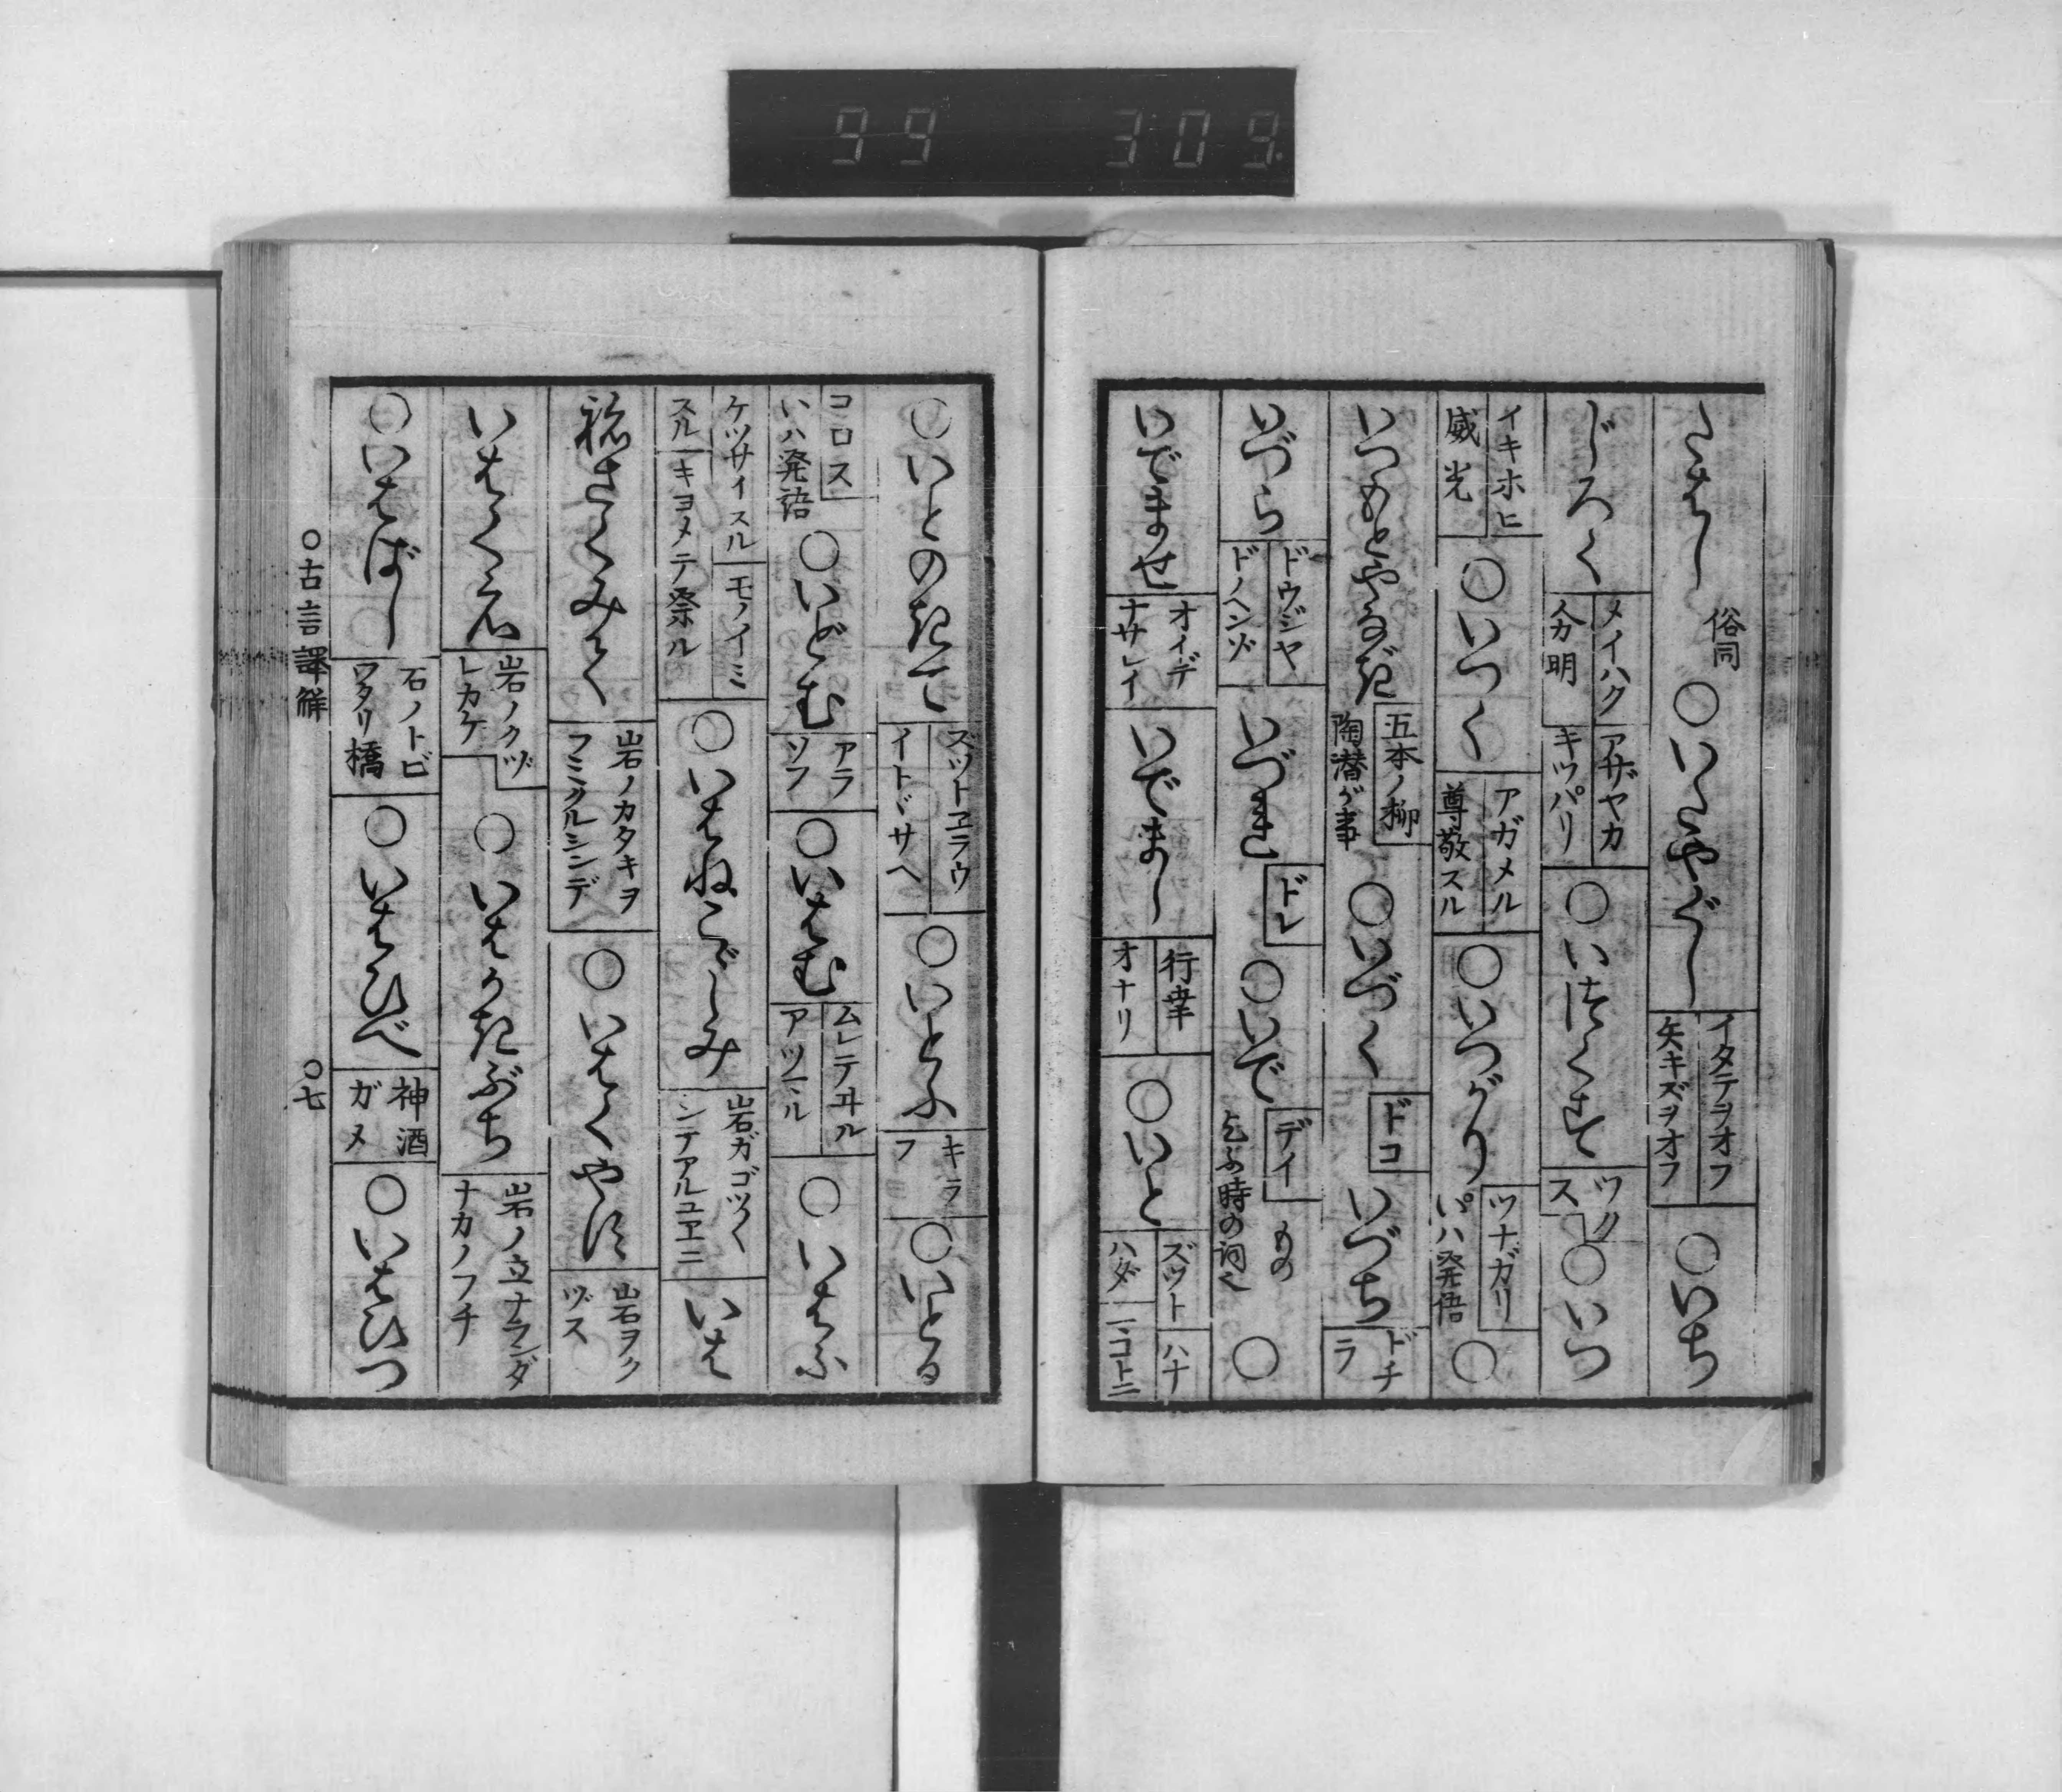 99 309.
たはし 俗同 ○いたやぐし イタテヲオフ 矢キズヲオフ ○いち
じろく メイハク 分明 アザヤカ キツパリ ○いづくす ワクス ○いつ
イキホヒ 威光 ○いつく アガメル 尊敬スル ○いつがり ツナガリ いハ発語 ○
いつもとやなぎ 五本ノ柳 陶潜が事 ○いづく ドコ いづち ドチラ
いづら ドウジヤ ドノヘンゾ いづれ ドレ ○いで デイ もの 乞ふ時の詞也 ○
いでませ オイデナサレイ いでまし 行幸 オナリ ○いと ズツト ハナハダ 一コトニ
○いとのきて ズツトヱラウ イトヾサヘ ○いとふ キラフ ○いとる
コロス いハ発語 ○いどむ アラソフ ○いはむ ムレテヰル アツマル ○いはふ
ケツサイスル モノイミスル キヨメテ祭ル ○いはねこゞしみ 岩ガゴツ〱シテアルユヱニ いは
ねさくみて 岩ノカタキヲフミクルシンデ ○いはくやす 岩ヲクヅス
いはくえ 岩ノクヅレカケ ○いはかきぶち 岩ノ立ナランダナカノフチ
○いはばし 石ノトビワタリ橋 ○いはひべ 神酒ガメ ○いはひつ
○古言譯解 ○七